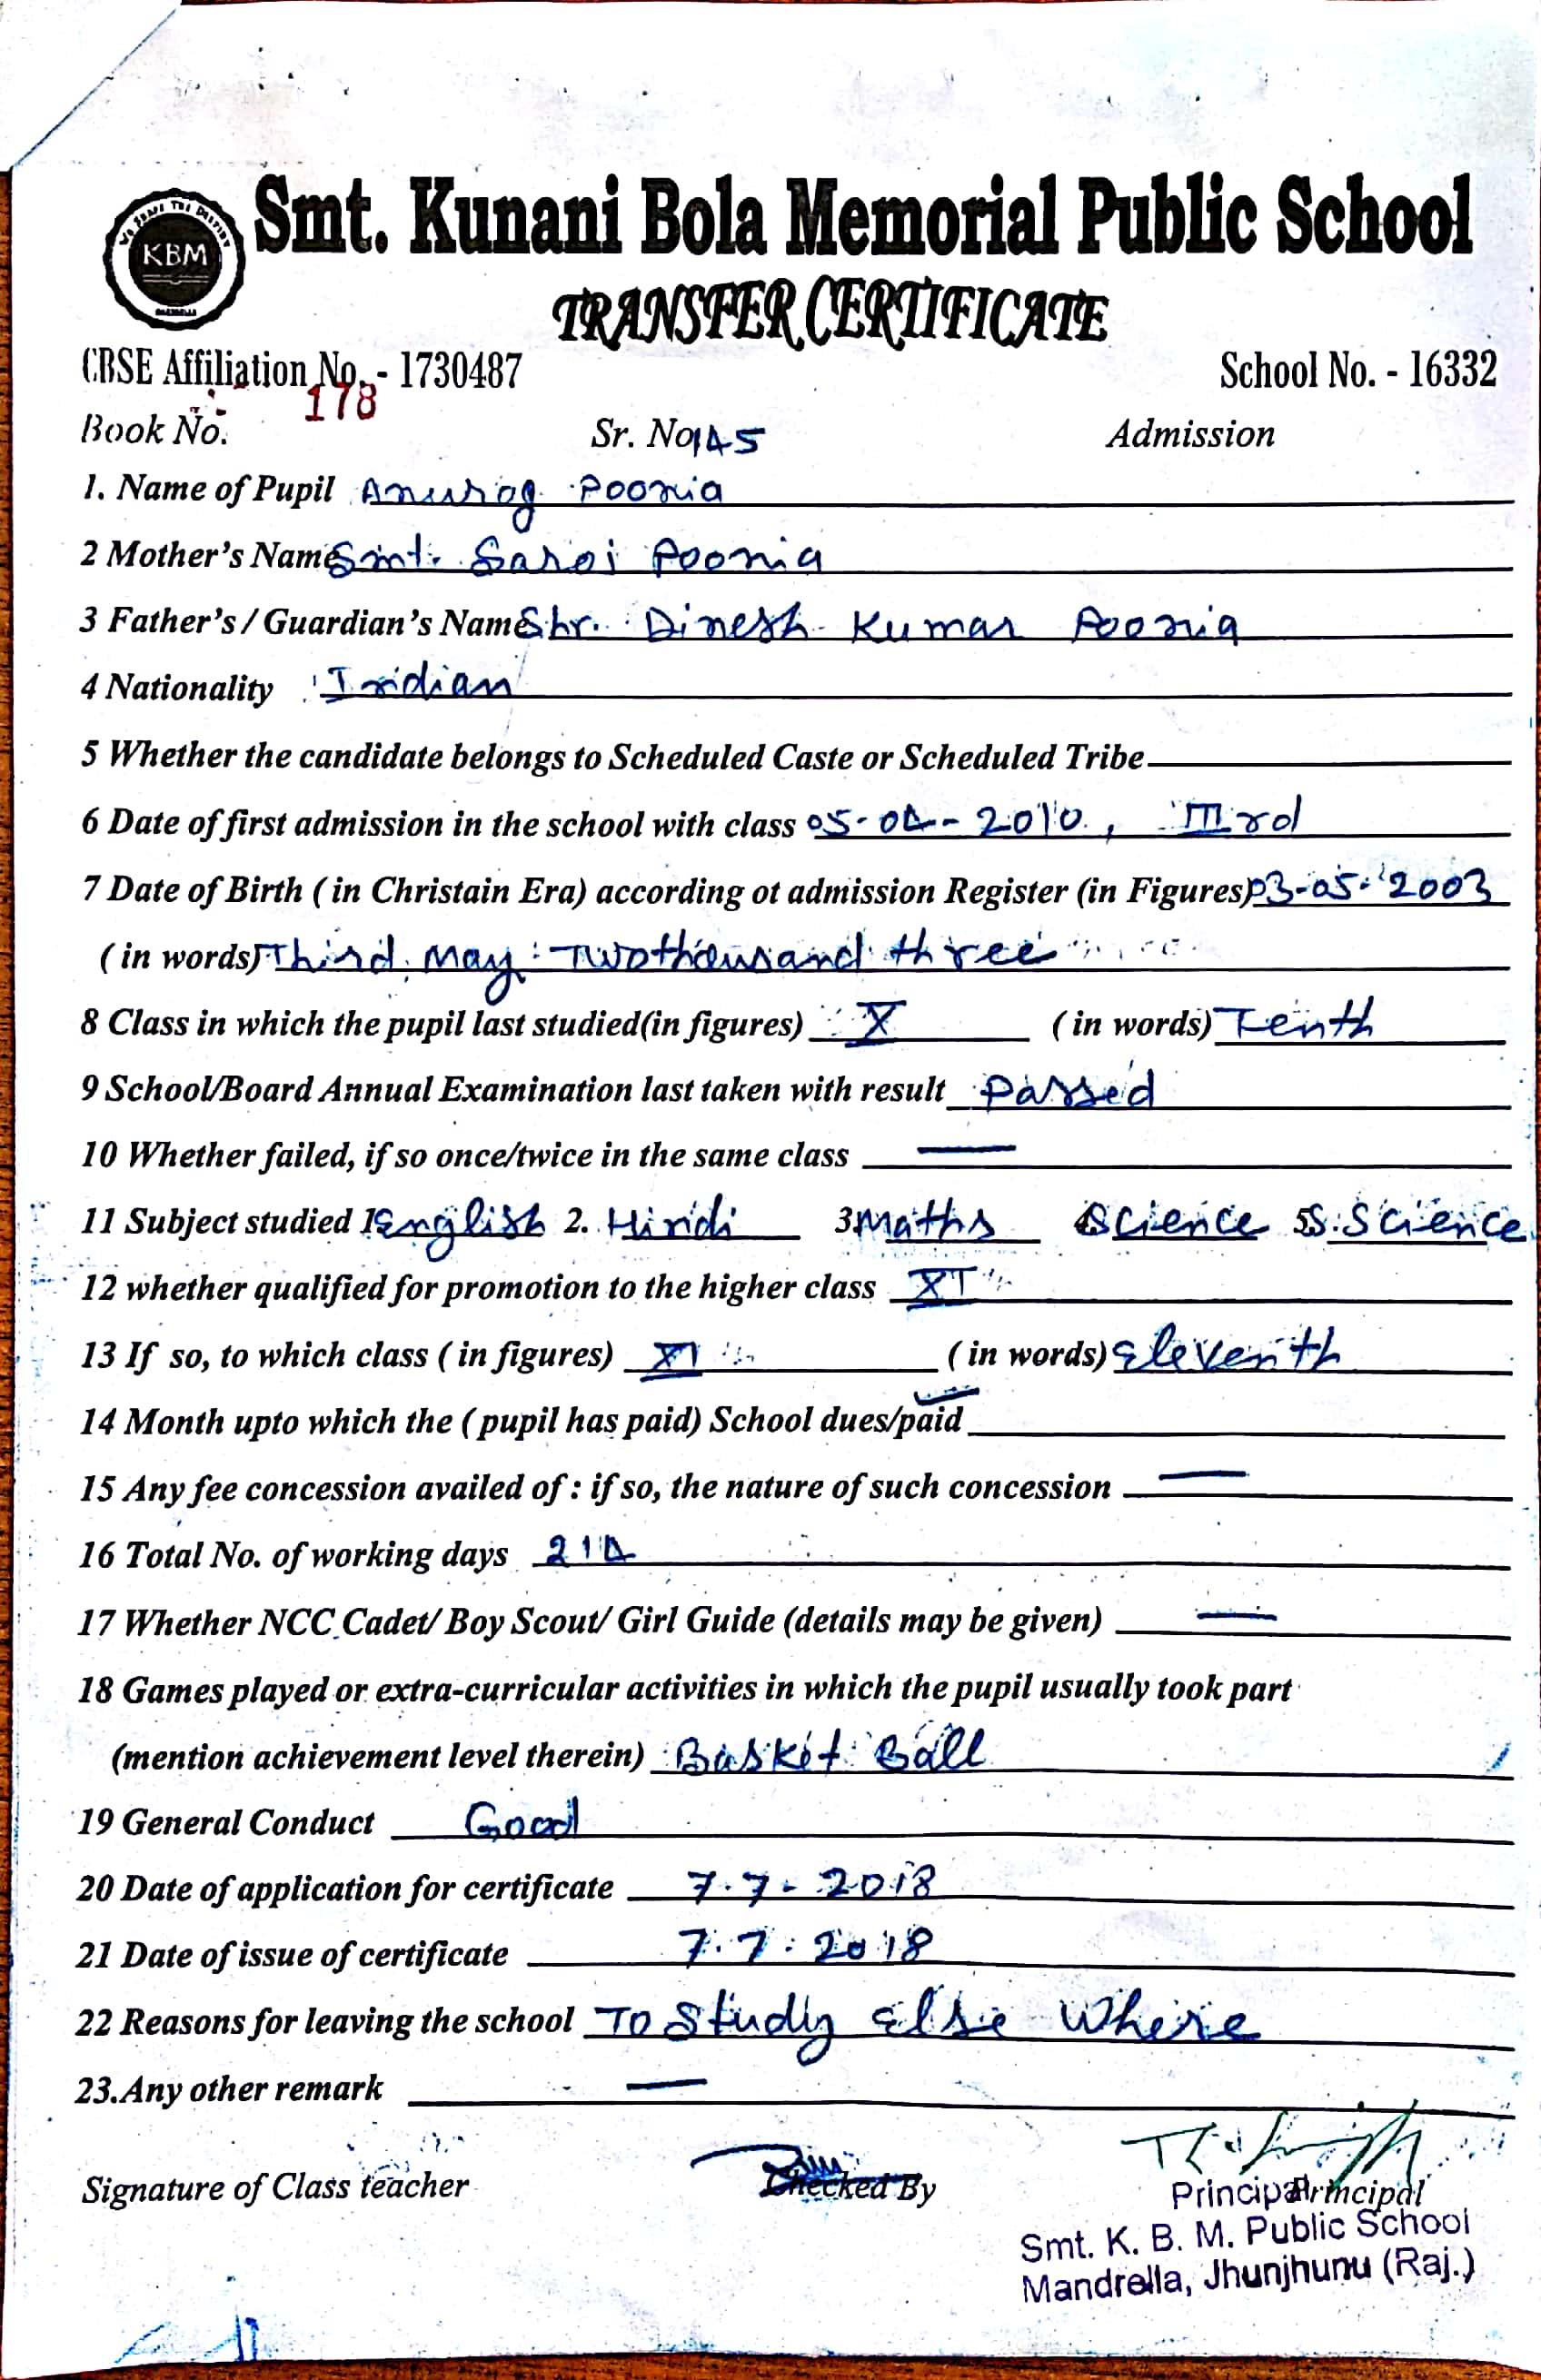 WE SHAPE THE DESTINY
KBM
Smt. Kunani Bola Memorial Public School
TRANSFER CERTIFICATE
CBSE Affiliation No. - 1730487 School No. - 16332
178
Book No. Sr. No 145 Admission
1. Name of Pupil Anurag Poonia
2 Mother's Name Smt. Saroj Poonia
3 Father's / Guardian's Name Shr. Dinesh Kumar Poonia
4 Nationality Indian
5 Whether the candidate belongs to Scheduled Caste or Scheduled Tribe
6 Date of first admission in the school with class 05-04-2010, IIIrd
7 Date of Birth ( in Christain Era) according ot admission Register (in Figures) 03-05-2003
( in words) Third May Twothousand three
8 Class in which the pupil last studied(in figures) X ( in words) Tenth
9 School/Board Annual Examination last taken with result Passed
10 Whether failed, if so once/twice in the same class —
11 Subject studied 1 English 2. Hindi 3 Maths 4 Science 5 S. Science
12 whether qualified for promotion to the higher class XI
13 If so, to which class ( in figures) XI ( in words) Eleventh
14 Month upto which the ( pupil has paid) School dues/paid
15 Any fee concession availed of : if so, the nature of such concession —
16 Total No. of working days 214
17 Whether NCC Cadet/ Boy Scout/ Girl Guide (details may be given) —
18 Games played or extra-curricular activities in which the pupil usually took part
(mention achievement level therein) Basket Ball
19 General Conduct Good
20 Date of application for certificate 7.7-2018
21 Date of issue of certificate 7.7.2018
22 Reasons for leaving the school To Study Else Where
23.Any other remark —
Signature of Class teacher Checked By Principal
Principal
Smt. K. B. M. Public School
Mandrella, Jhunjhunu (Raj.)